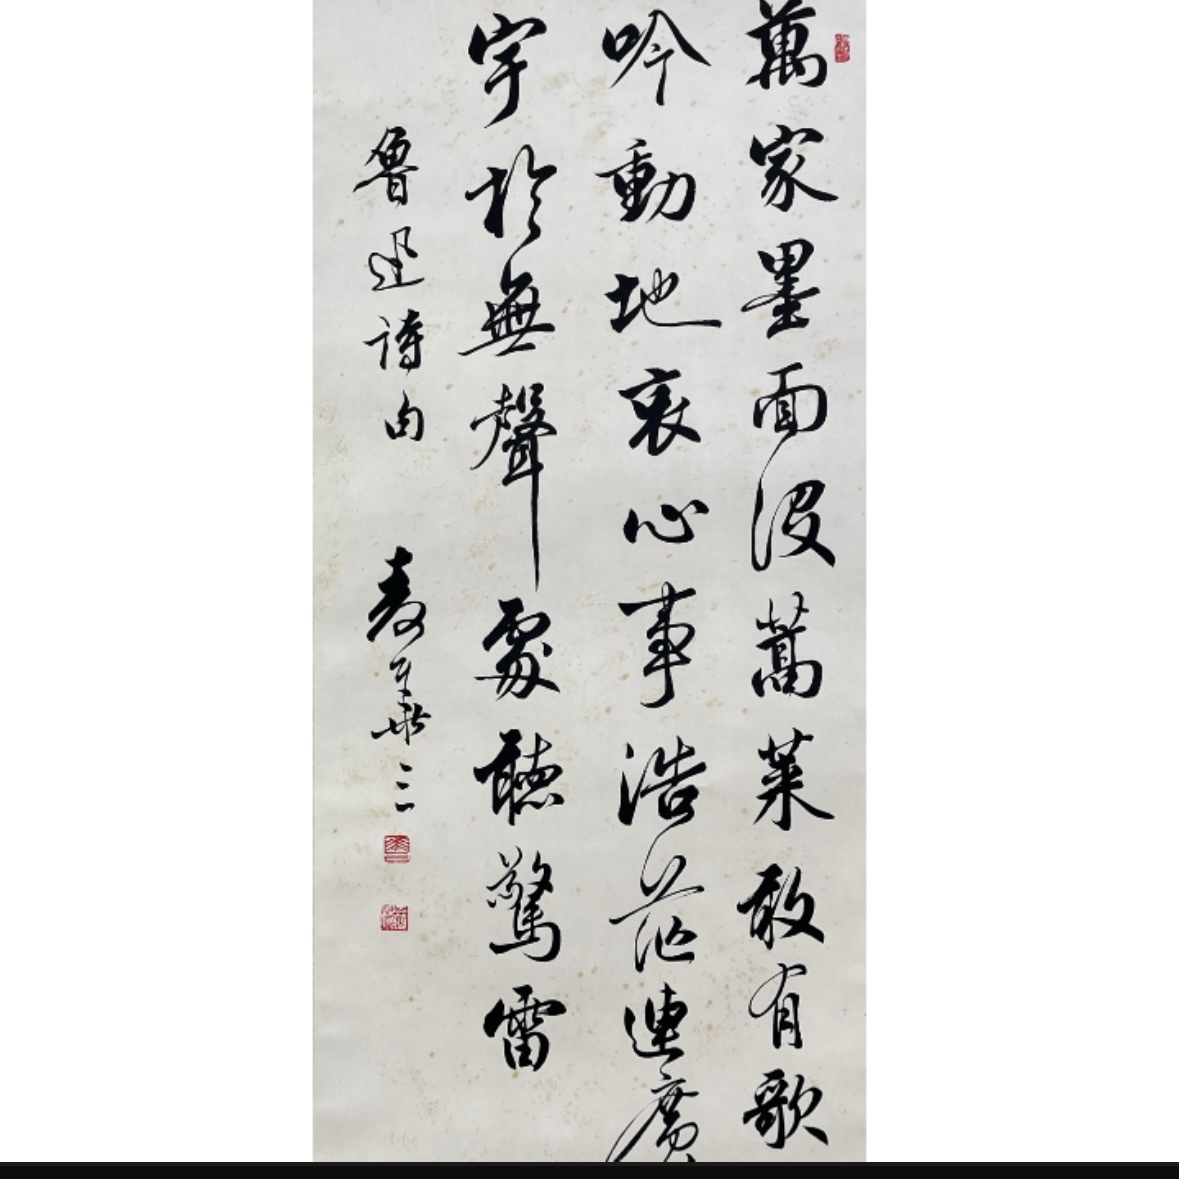 萬家墨面没蒿萊敢有歌
吟動地哀心事浩茫連廣
宇於無聲處聽驚雷
魯迅詩句